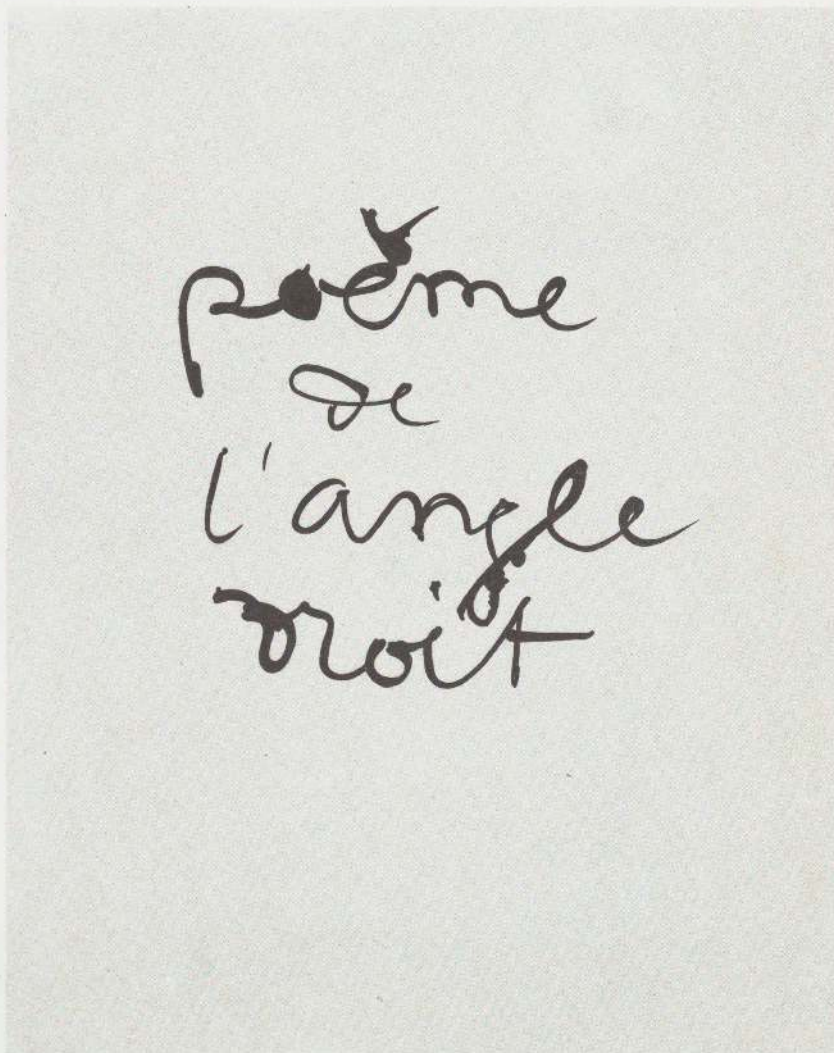 poème
de
l'angle
droit